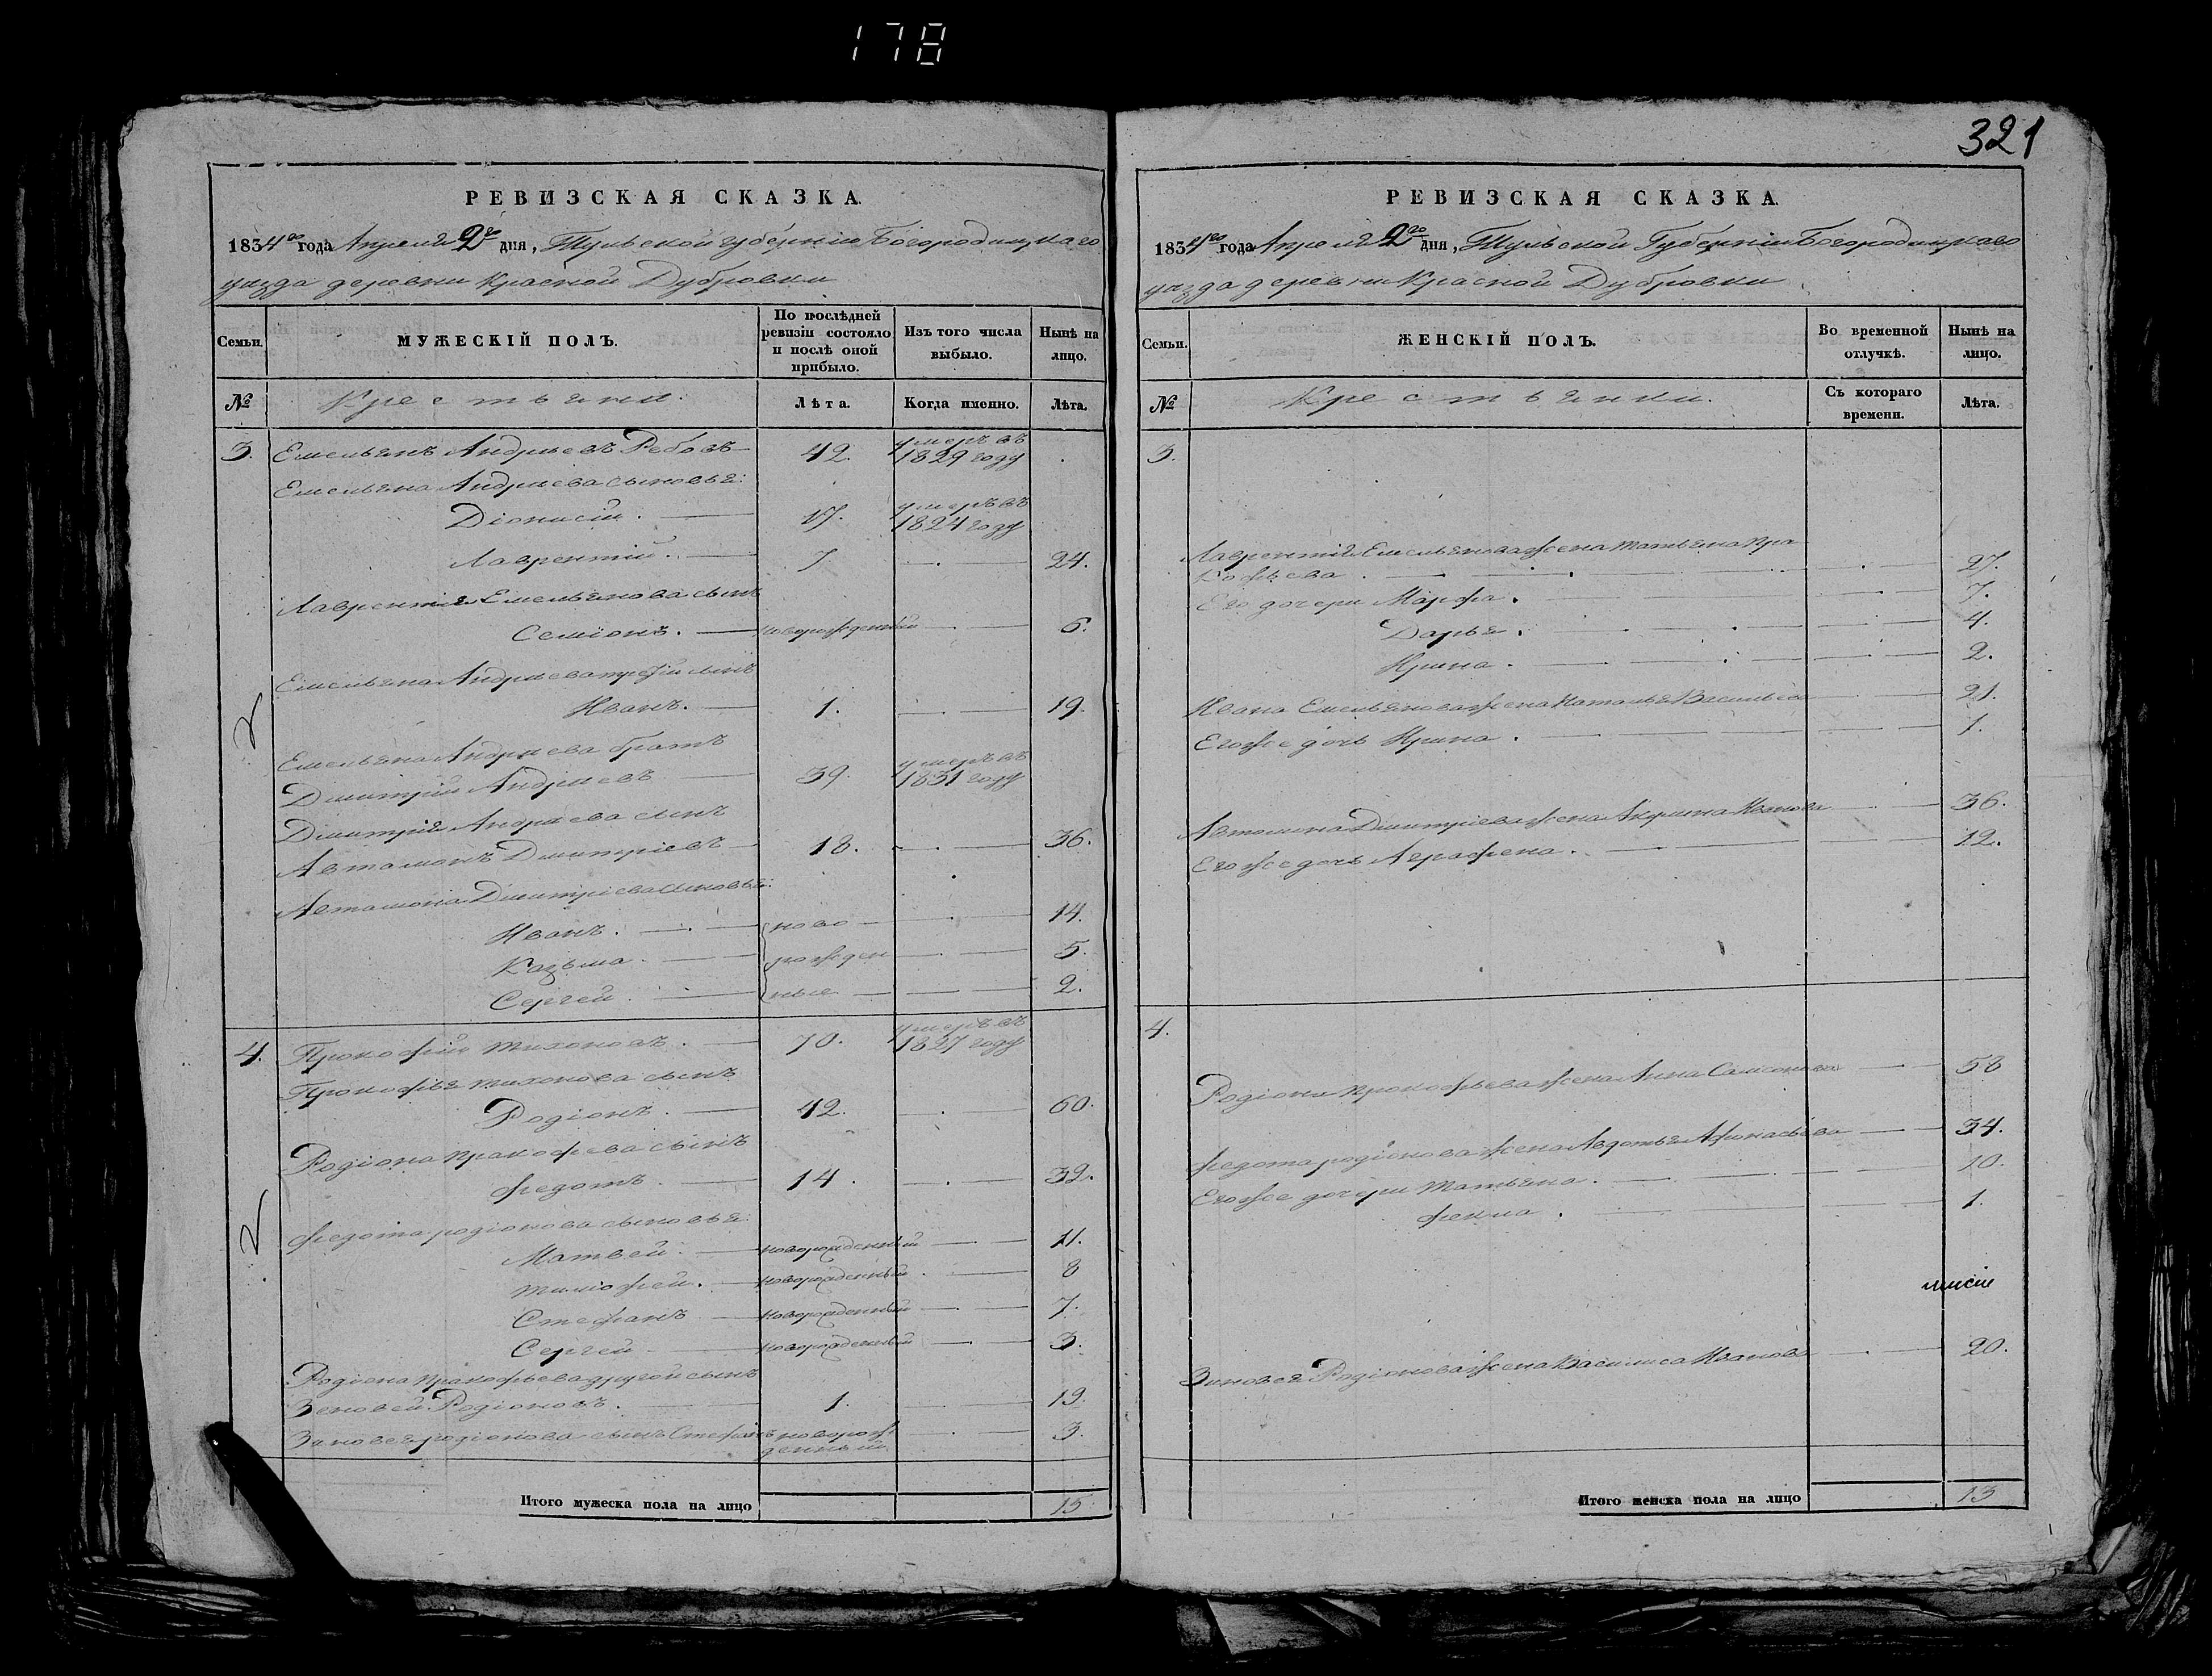 178
РЕВИЗСКАЯ СКАЗКА.
1834го года Апреля 2го дня, Тульской губернiи Богородицкаго
уезда деревни Красной Дубровки
Семьи.
МУЖЕСКIЙ ПОЛЪ.
По послѣдней ревизiи состояло и послѣ оной прибыло.
Изъ того числа выбыло.
Нынѣ на лицо.
№
Крестьяни.
Лѣта.
Когда именно.
Лѣта.
3. Емельянъ Андреевъ Ребовъ 42. умеръ въ 1829 году
Емельяна Андреева сыновья:
Дiонисiй. 17. умеръ въ 1824 году
Лаврентiй. 7. 24.
Лаврентiя Емельянова сынъ
Семiонъ. новорожденный 6.
Емельяна Андреева третiй сынъ
Иванъ. 1. 19.
Емельяна Андреева братъ
Дмитрiй Андреевъ 39. умеръ въ 1831 году
Дмитрiя Андреева сынъ
Автамонъ Дмитрiевъ 18. 36.
Автамона Дмитрiева сыновья:
Иванъ. ново 14.
Казьма. рожден 5.
Сергей. ные 2.
4. Прокофiй Тихоновъ. 70. умеръ въ 1827 году
Прокофья Тихонова сынъ
Родiонъ. 42. 60.
Родiона Пракофева сынъ
Федотъ. 14. 32.
Федота родiонова сыновья:
Матвей. новорожденный 11.
Тимофей. новорожденный 8
Стефанъ новорожденный 7.
Сергей новорожденный 3.
Родiона Пракофьева другой сынъ
Зеновей Родiоновъ. 1. 19.
Зиновея родiонова сынъ Стефанъ новорожденный 3.
Итого мужеска пола на лицо 15
321
РЕВИЗСКАЯ СКАЗКА.
1834го года Апреля 2го дня, Тульской Губернiи Богородицкаго
уезда деревни Красной Дубровки
Семьи.
ЖЕНСКIЙ ПОЛЪ.
Во временной отлучкѣ.
Нынѣ на лицо.
№
Крестьянки.
Съ котораго времени.
Лѣта.
3.
Лаврентiя Емельянова жена Татьяна Пра
кофьева 27.
Его дочери Марфа. 7.
Дарья. 4.
Ирина. 2.
Ивана Емельянова жена Наталья Васильева 21.
Его же дочь Ирина. 1.
Автамона Дмитрiева жена Акулина Иванова 36.
Его же дочь Аграфена. 12.
4.
Родiона Прокофьева жена Анна Самсонова 58
Федота родiонова жена Авдотья Афонасьева 34.
Его же дочери Татьяна. 10.
Фекла. 1.
Зиновея Родiонова жена Василиса Иванова 20.
Итого женска пола на лицо 13